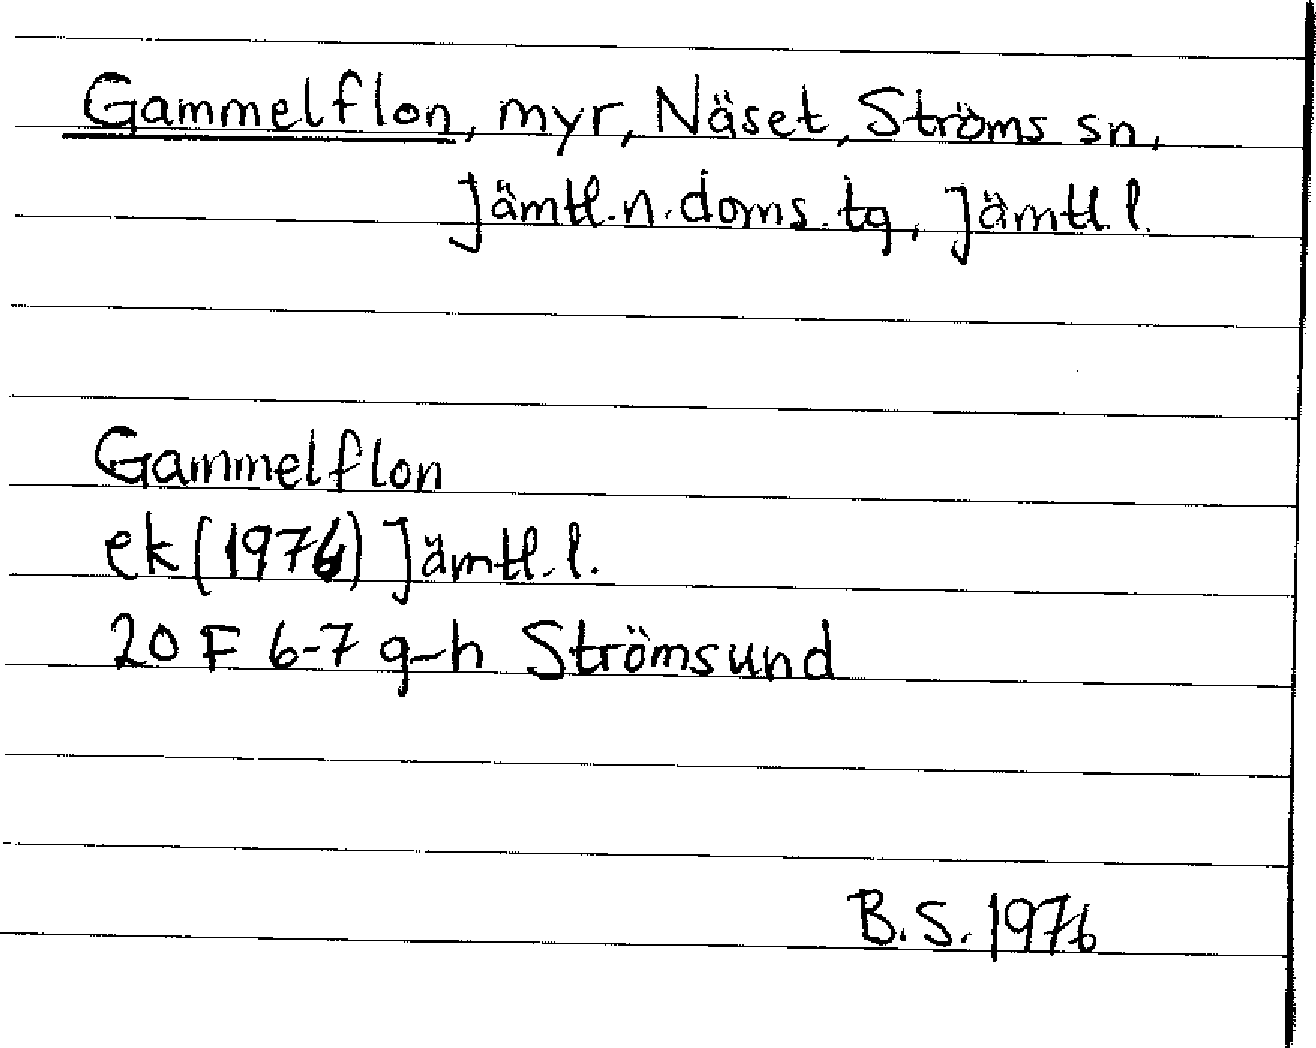 Gammelflon, myr, Näset, Ströms sn,
Jämtl. n. doms. tg, Jämtl. l.
Gammelflon
ek (1976) Jämtl. l.
20 F 6-7 g-h Strömsund
B.S. 1976